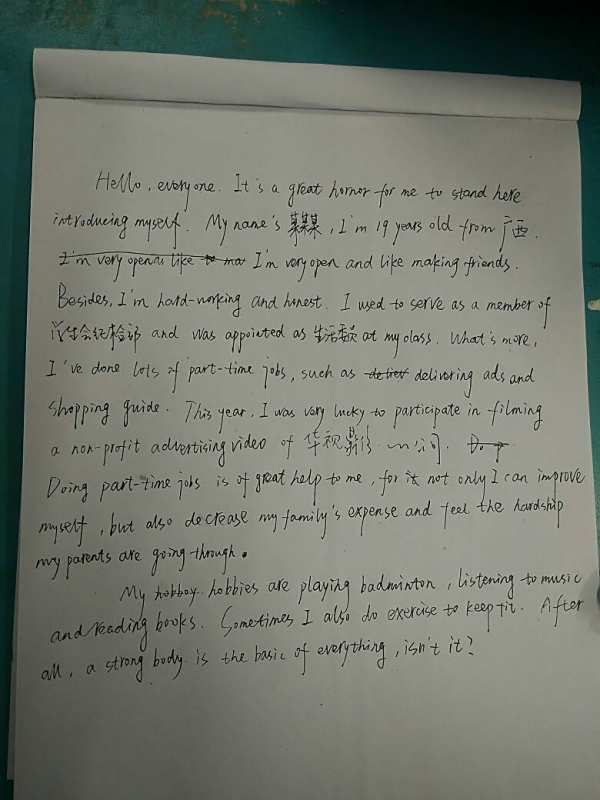 Hello, everyone. It's a great hornor for me to stand here
introducing myself. My name's 某某某, I'm 19 years old from 广西.
I'm very open and like making friends.
Besides, I'm hard-working and honest. I used to serve as a member of
学生会纪检部 and was appointed as 生活委员 at my class. What's more,
I've done lots of part-time jobs, such as delivering ads and
shopping guide. This year, I was very lucky to participate in filming
a non-profit advertising video of 华视 公司.
Doing part-time jobs is of great help to me, for it not only I can improve
myself, but also decrease my family's expense and feel the hardship
my parents are going through.
My hobboy hobbies are playing badminton, listening to music
and reading books. Sometimes I also do exercise to keep fit. After
all, a strong body is the basic of everything, isn't it?